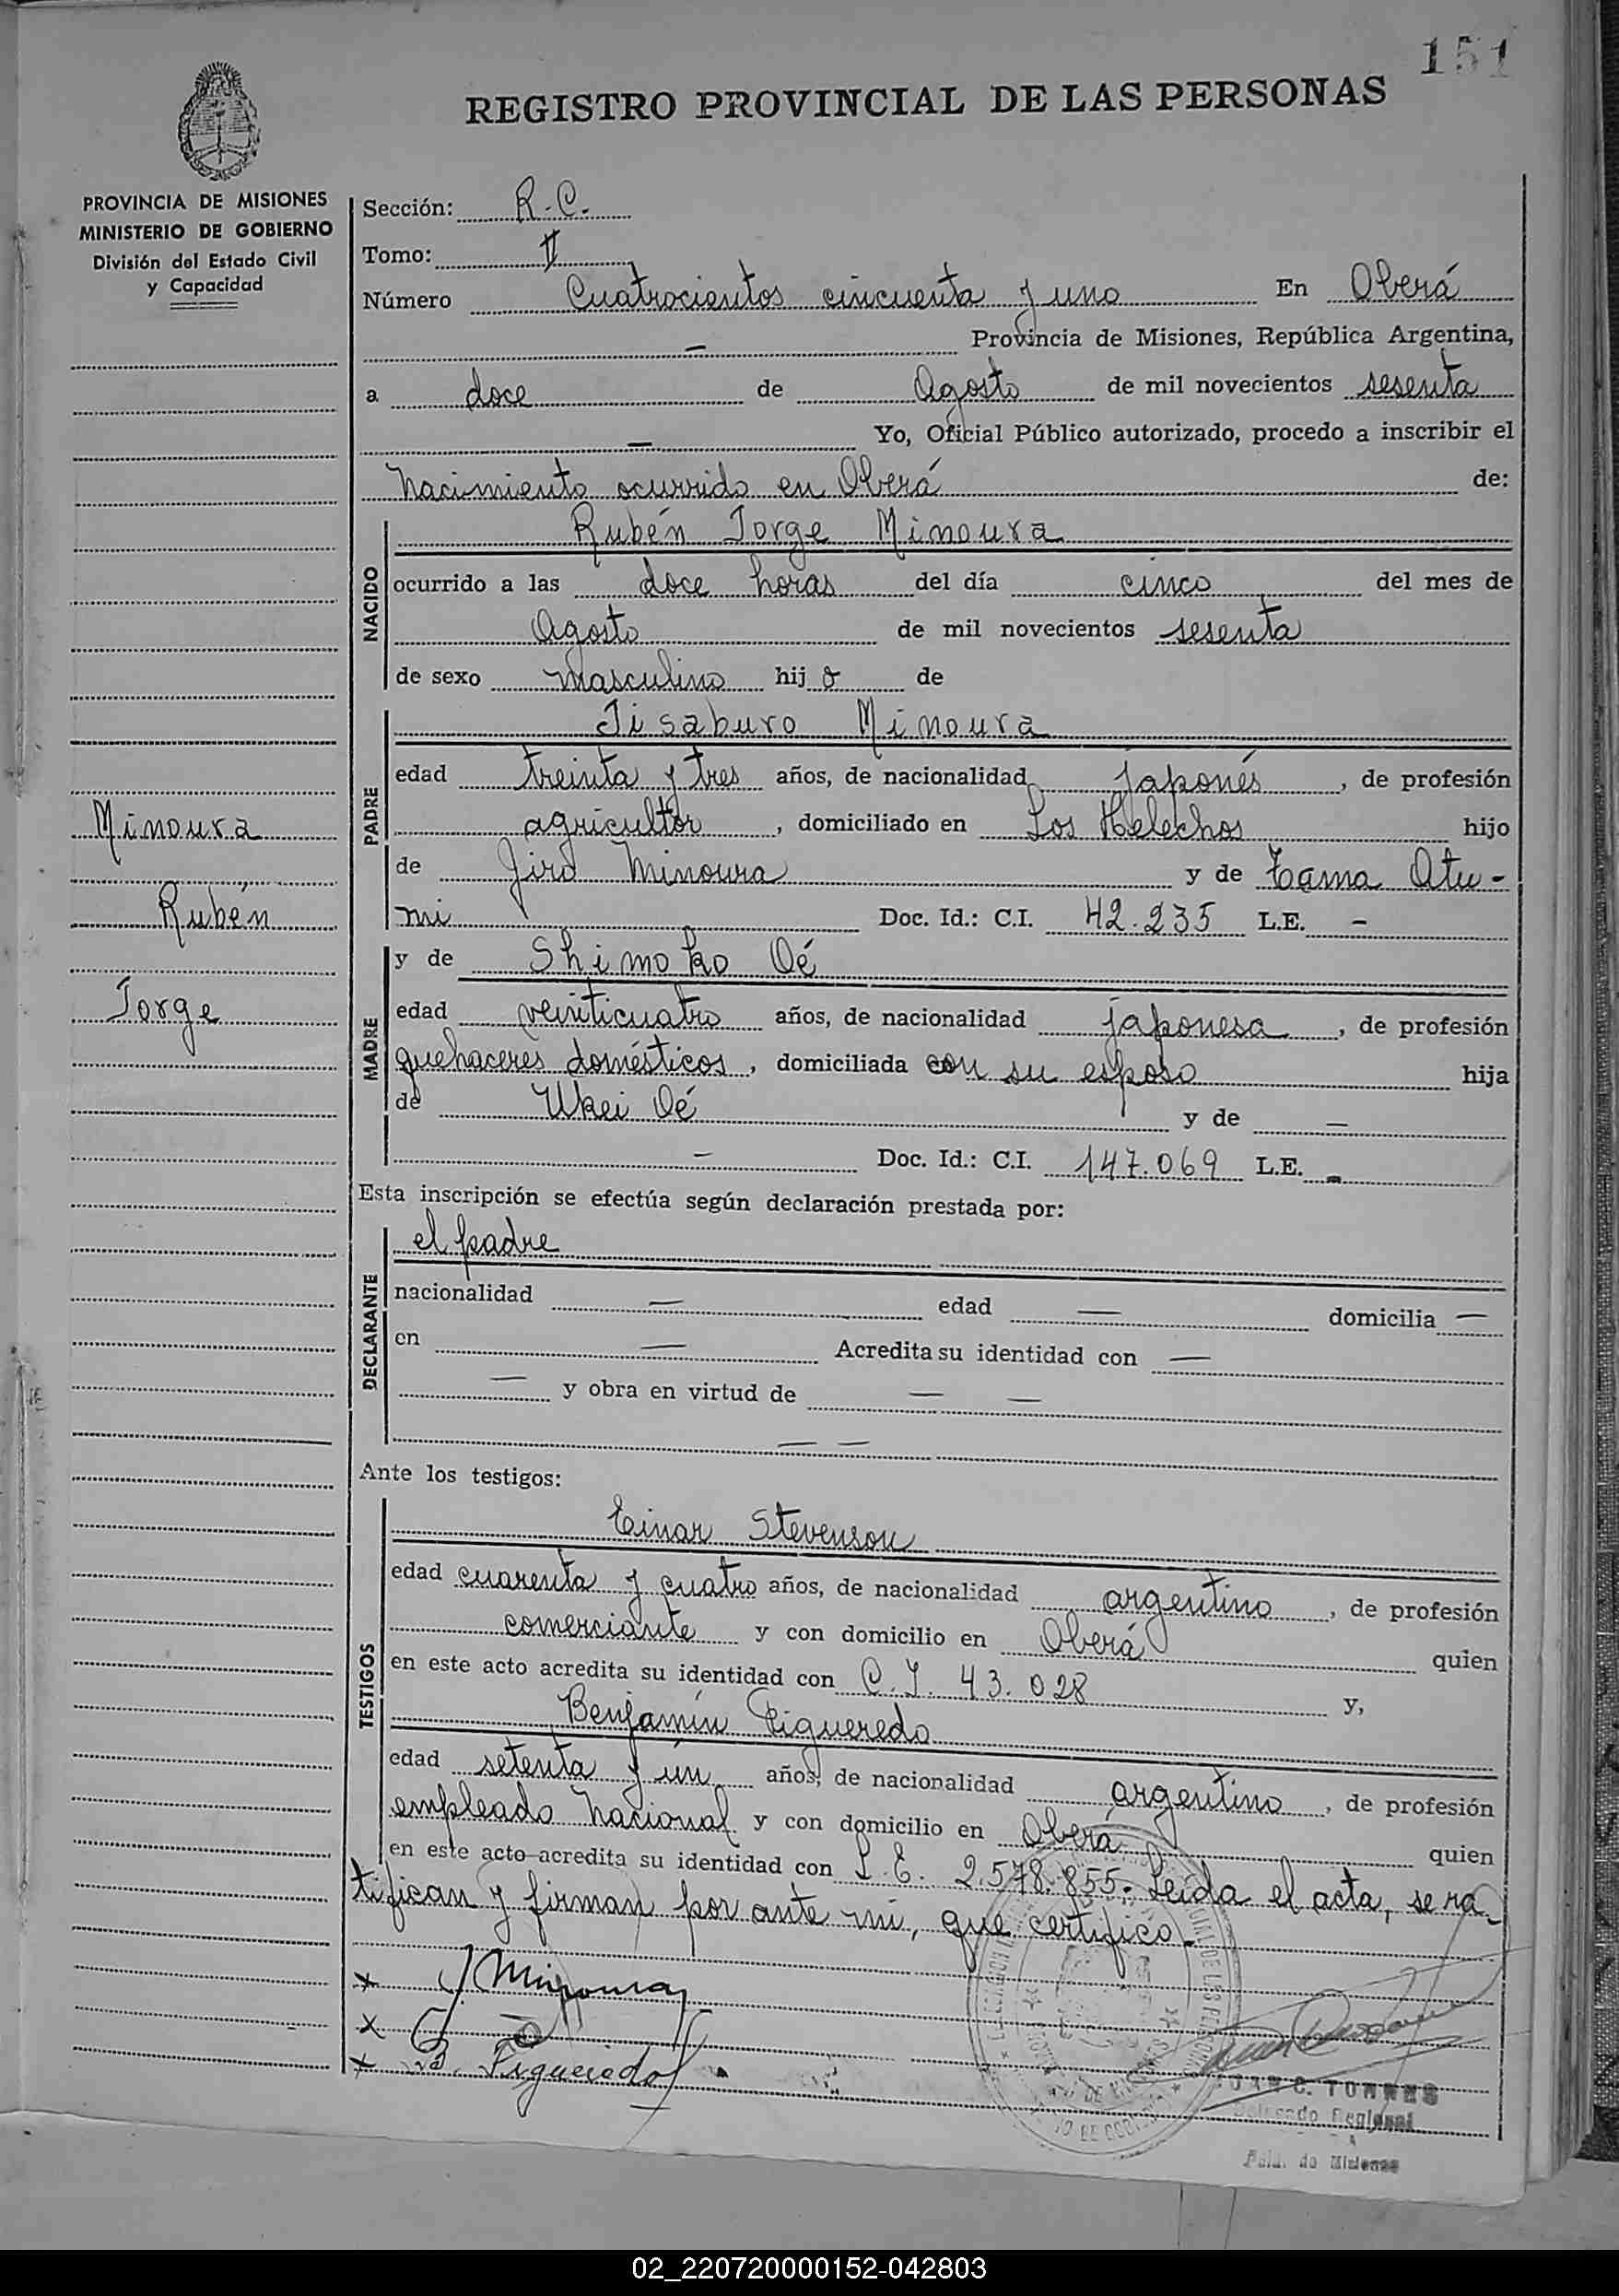 151
REGISTRO PROVINCIAL DE LAS PERSONAS
PROVINCIA DE MISIONES
MINISTERIO DE GOBIERNO
División del Estado Civil
y Capacidad
Sección: R.C.
Tomo: II
Número Cuatrocientos cincuenta y uno En Oberá
— Provincia de Misiones, República Argentina,
a doce de Agosto de mil novecientos sesenta
— Yo, Oficial Público autorizado, procedo a inscribir el
nacimiento ocurrido en Oberá de:
NACIDO
Rubén Jorge Minoura
ocurrido a las doce horas del día cinco del mes de
Agosto de mil novecientos sesenta
de sexo masculino hijo de
PADRE
Jisaburo Minoura
edad treinta y tres años, de nacionalidad japonés, de profesión
agricultor, domiciliado en Los Helechos hijo
de Jiro Minoura y de Tama Atu-
mi Doc. Id.: C.I. 42.235 L.E. —
MADRE
y de Shimoko Oé
edad veinticuatro años, de nacionalidad japonesa, de profesión
quehaceres domésticos, domiciliada con su esposo hija
de Ukei Oé y de —
— Doc. Id.: C.I. 147.069 L.E. —
Minoura
Rubén
Jorge
Esta inscripción se efectúa según declaración prestada por:
DECLARANTE
el padre
nacionalidad — edad — domicilia —
en — Acredita su identidad con —
— y obra en virtud de — —
— —
Ante los testigos:
TESTIGOS
Einar Stevenson
edad cuarenta y cuatro años, de nacionalidad argentino, de profesión
comerciante y con domicilio en Oberá quien
en este acto acredita su identidad con C.I. 43.028 y,
Benjamín Figueredo
edad setenta y ún años, de nacionalidad argentino, de profesión
empleado Nacional y con domicilio en Oberá quien
en este acto acredita su identidad con L.E. 2.578.855. Leída el acta, se ra-
tifican y firman por ante mí, que certifico.-
x J Minoura
x
x B. Figueredo
JUAN C. TORRES
Delegado Regional
Pcia. de Misiones
02_220720000152-042803